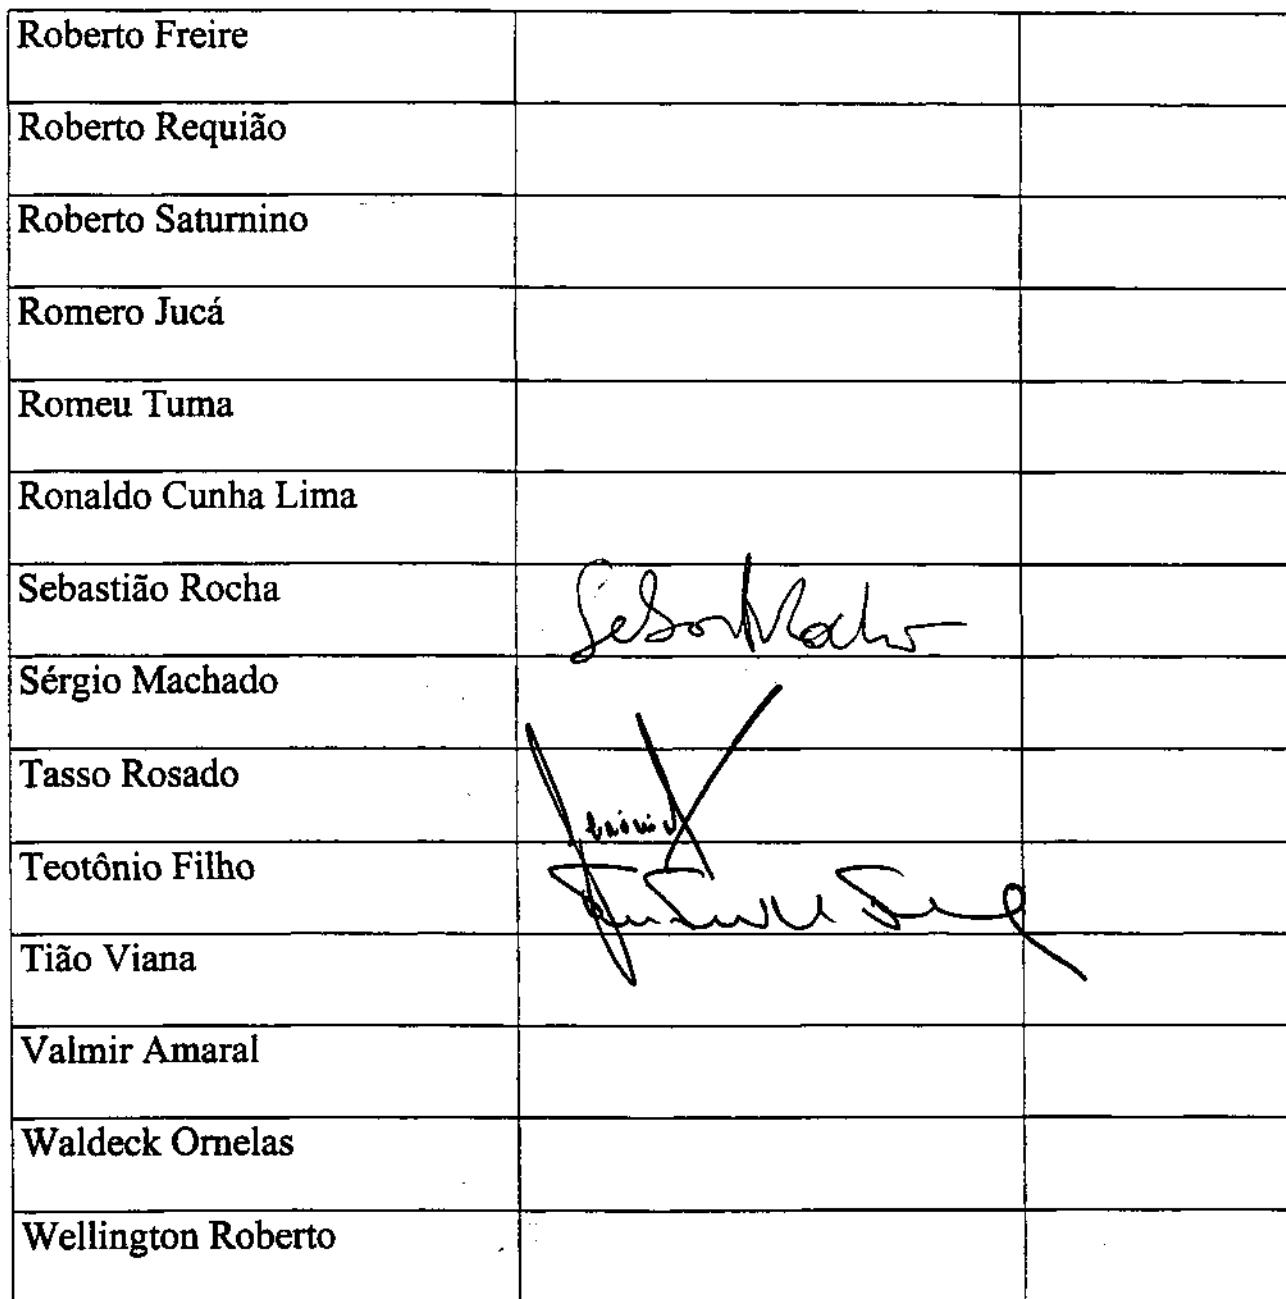 Roberto Freire
Roberto Requião
Roberto Saturnino
Romero Jucá
Romeu Tuma
Ronaldo Cunha Lima
Sebastião Rocha
Sérgio Machado
Tasso Rosado
Teotônio Filho
Tião Viana
Valmir Amaral
Waldeck Ornelas
Wellington Roberto